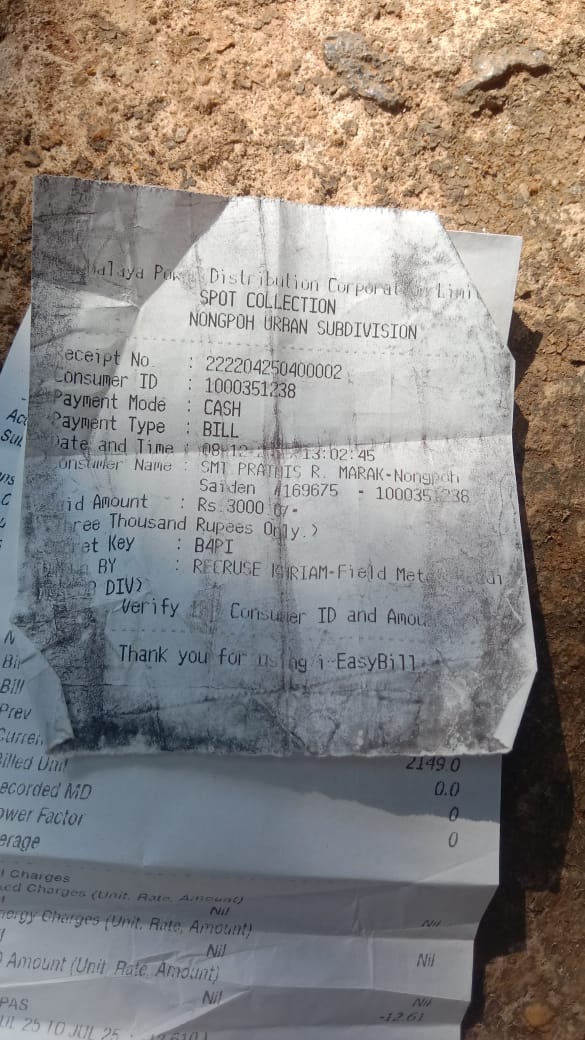 alaya Pow Distribution Corporation Limi
SPOT COLLECTION
NONGPOH URBAN SUBDIVISION
eceipt No : 222204250400002
Consumer ID : 1000351238
Payment Mode : CASH
Payment Type : BILL
Date and Time : 08-12- 13:02:45
onsumer Name : SMT PRATNIS R. MARAK-Nongpoh
Saiden #169675 - 1000351238
id Amount : Rs.3000
hree Thousand Rupees Only.)
ret Key : B4PI
BY : RECRUSE -Field
DIV)
Verify Consumer ID and Amou
Thank you for using i-EasyBill
Acc
Su
Bill
Bill
Prev
Curren
illed Unit 2149.0
ecorded MD 0.0
ower Factor 0
erage 0
l Charges
xed Charges (Unit, Rate, Amount)
Nil
nergy Charges (Unit, Rate, Amount) Nil
Nil
Amount (Unit, Rate, Amount) Nil
Nil Nil
PAS -12.61
UL 25 TO JUL 25 :